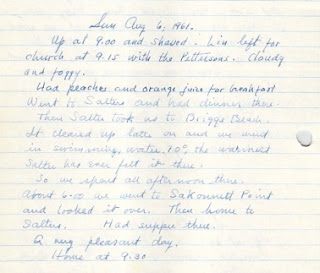 Sun Aug 6, 1961.
Up at 9.00 and shaved. Lin left for
church at 9.15 with the Pettersons. Cloudy
and foggy.
Had peaches and orange juice for breakfast
Went to Salters and had dinner there.
Then Salter took us to Briggs Beach.
It cleared up later on and we went
in swimming, water 70° the warmest
Salter has ever felt it there.
So we spent all afternoon there.
About 6.00 we went to Sakonnett Point
and looked it over. Then home to
Salters. Had supper there.
A very pleasant day.
Home at 9.30